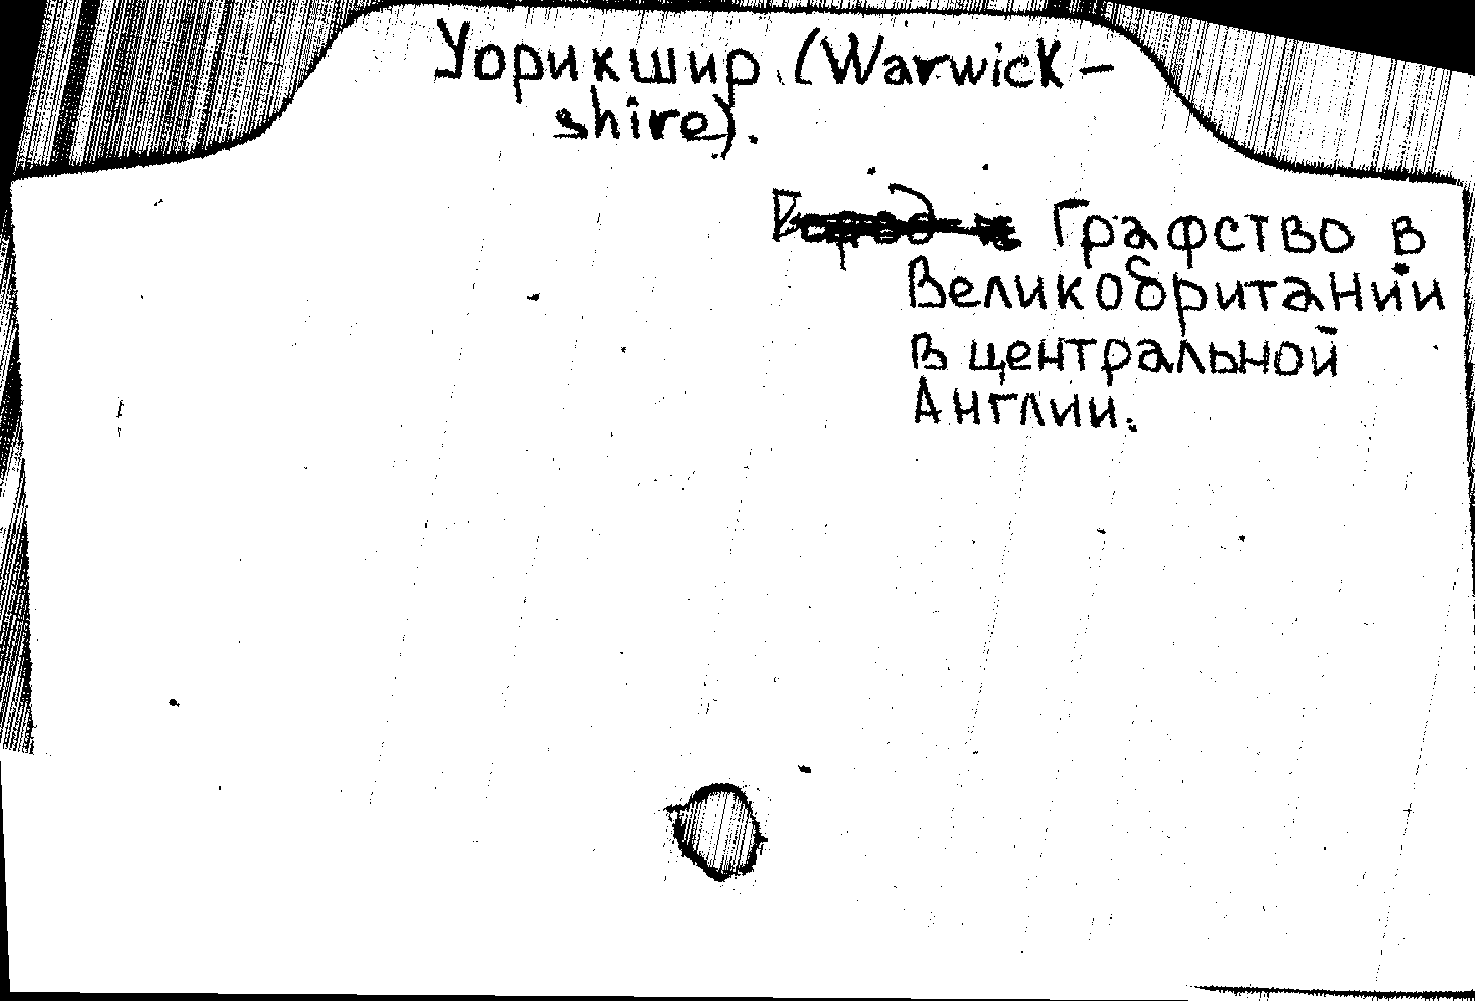 Уорикшир (Warwick-
shire).
Графство в
Великобритании
в центральной
Англии.